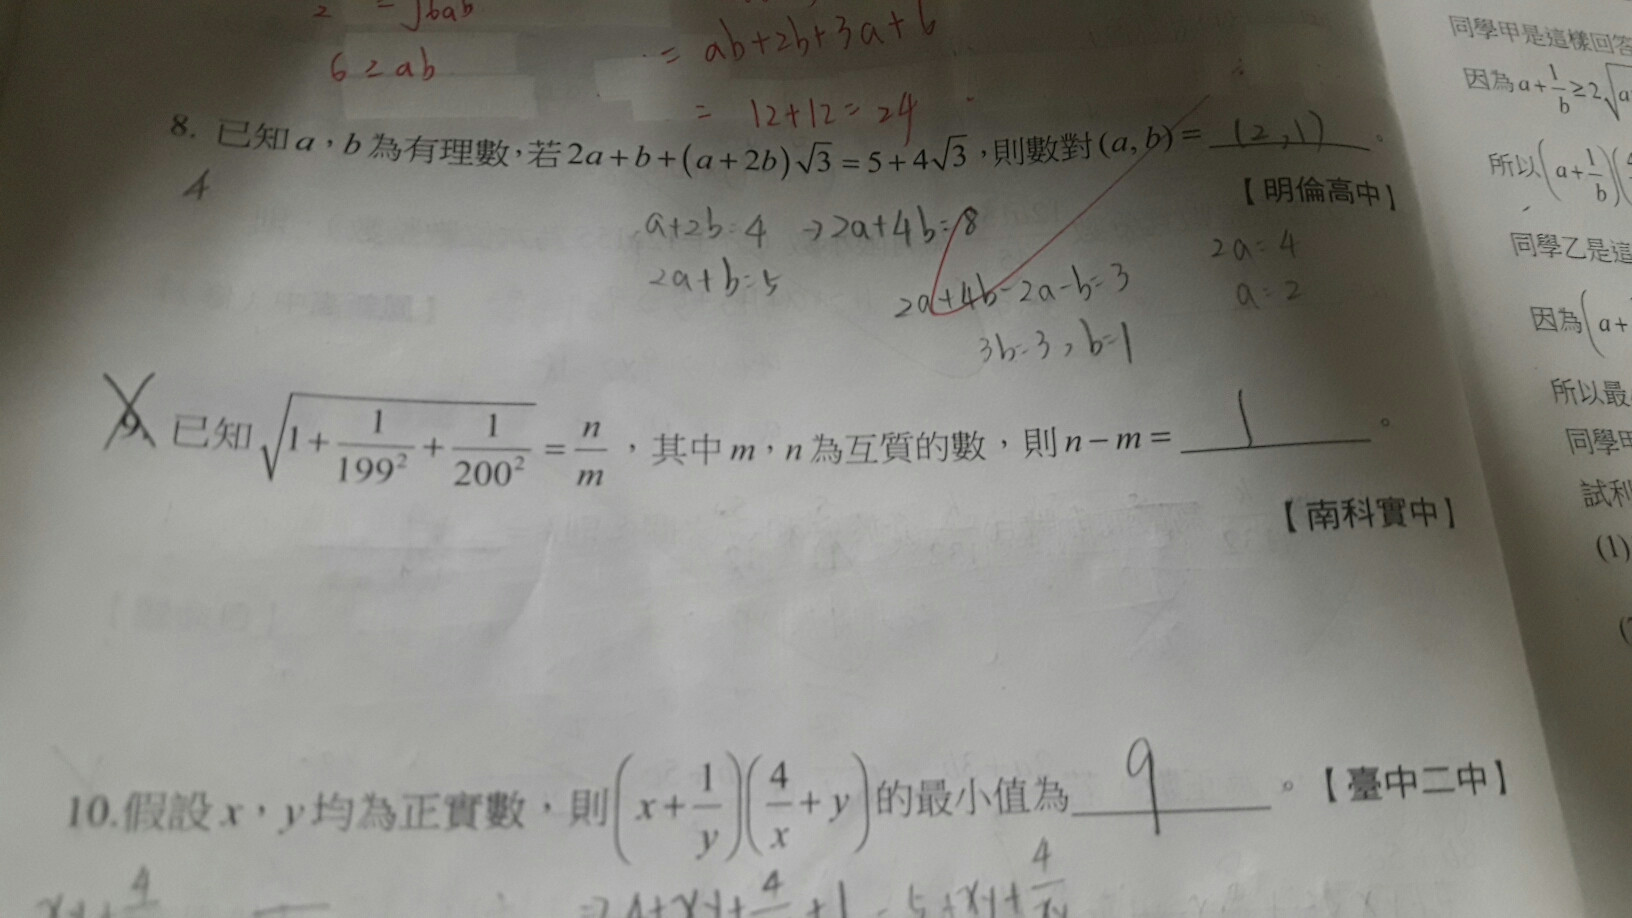 = √6ab
6 ≥ ab
= ab+2b+3a+6
= 12+12=24
8. 已知a,b為有理數,若2a+b+(a+2b)√3=5+4√3,則數對(a,b)= (2,1) 。
【明倫高中】
4
a+2b=4 →2a+4b=8
2a+b=5
2a+4b-2a-b=3
3b=3,b=1
2a=4
a=2
9. 已知√(1+1/199²+1/200²)=n/m,其中m,n為互質的數,則n-m= 1 。
【南科實中】
10.假設x,y均為正實數,則(x+1/y)(4/x+y)的最小值為 9 。【臺中二中】
同學甲是這樣回答
因為a+1/b≥2√a
所以(a+1/b)(
同學乙是這
因為(a+
所以最
同學甲
試利
(1)